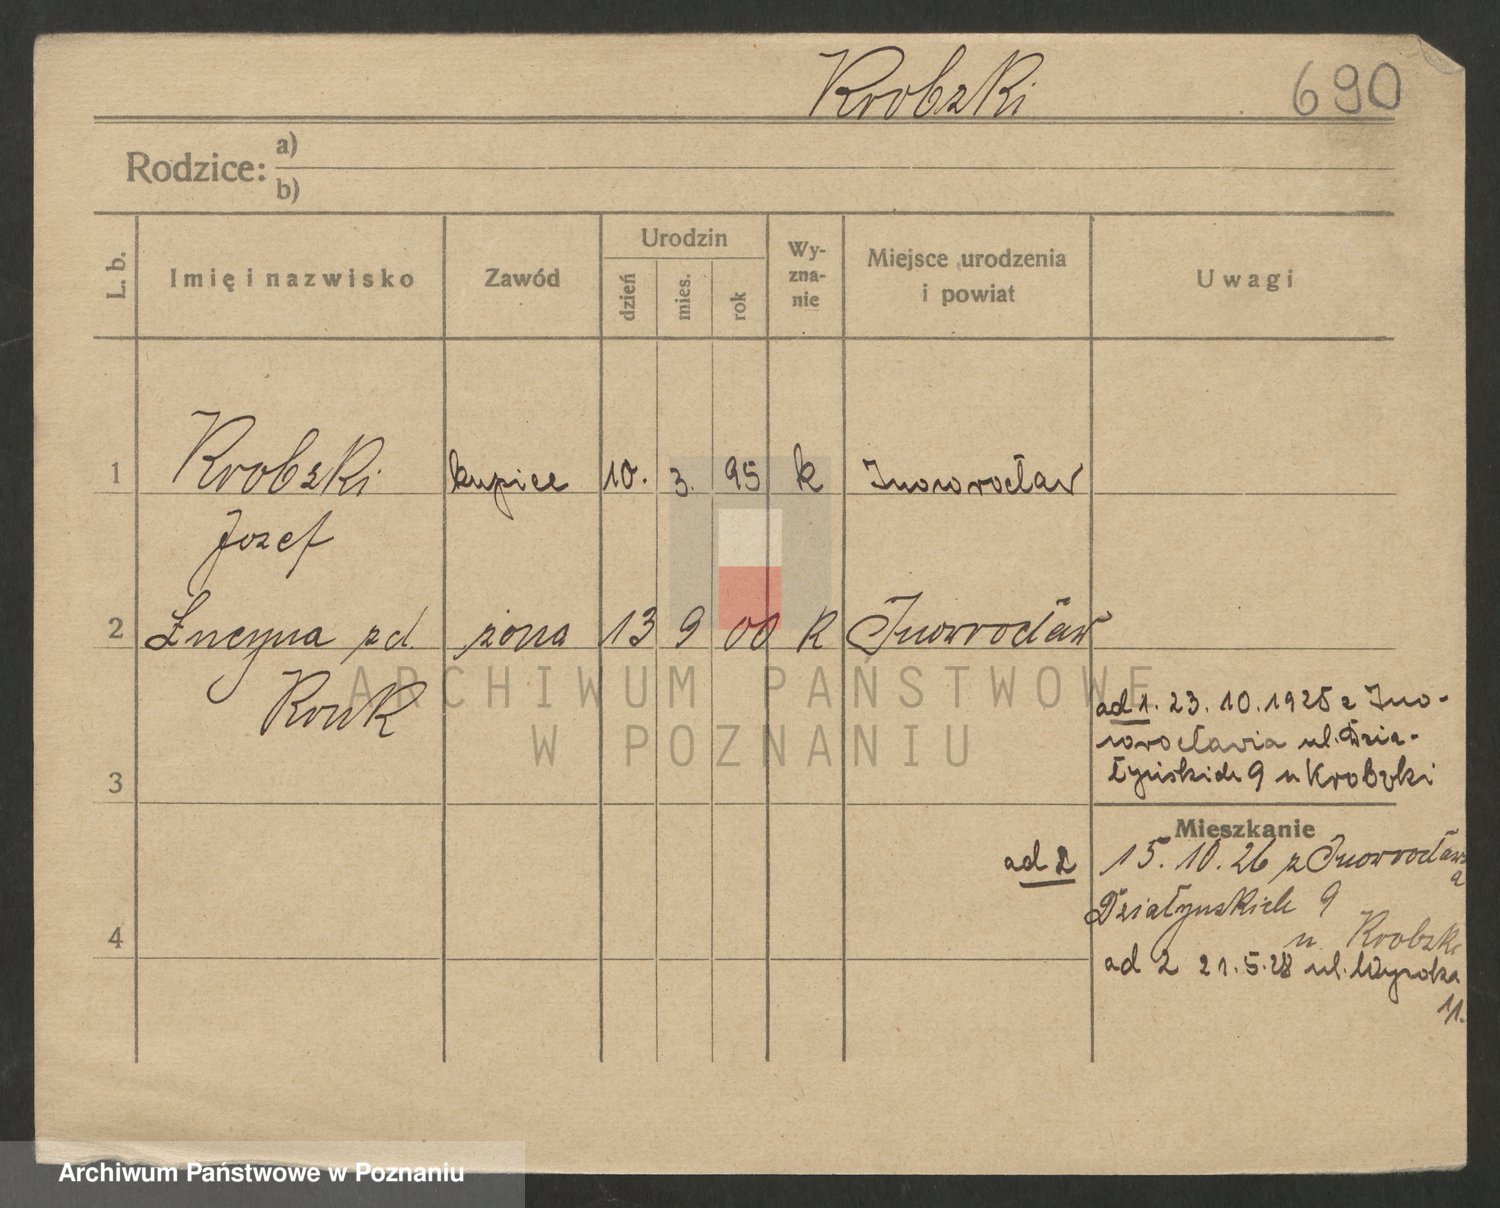 Krobski 690
Rodzice: a)
b)
L. b. Imię i nazwisko Zawód Urodzin dzień mies. rok Wy-zna-nie Miejsce urodzenia i powiat Uwagi
1 Krobski kupiec 10. 3. 95 k Inowrocław
Jozef
2 Łucyna zd. żona 13 9 00 k Inowrocław
ARCHIWUM PAŃSTWOWE
W POZNANIU
ad 1. 23. 10. 1925 z Ino-
wrocławia ul. Dzia-
łyńskich 9 u Krobski
3
Mieszkanie
ad 2 15. 10. 26 z Inowrocławia
Działyńskich 9
u Krobski
4
ad 2 21. 5. 28 ul.
Archiwum Państwowe w Poznaniu